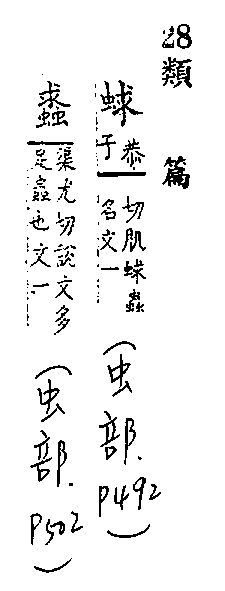 28 類篇
蛷 恭于切肌蛷蟲名文一 (虫部. P492)
渠尤切說文多足蟲也文一 (虫部. P502)